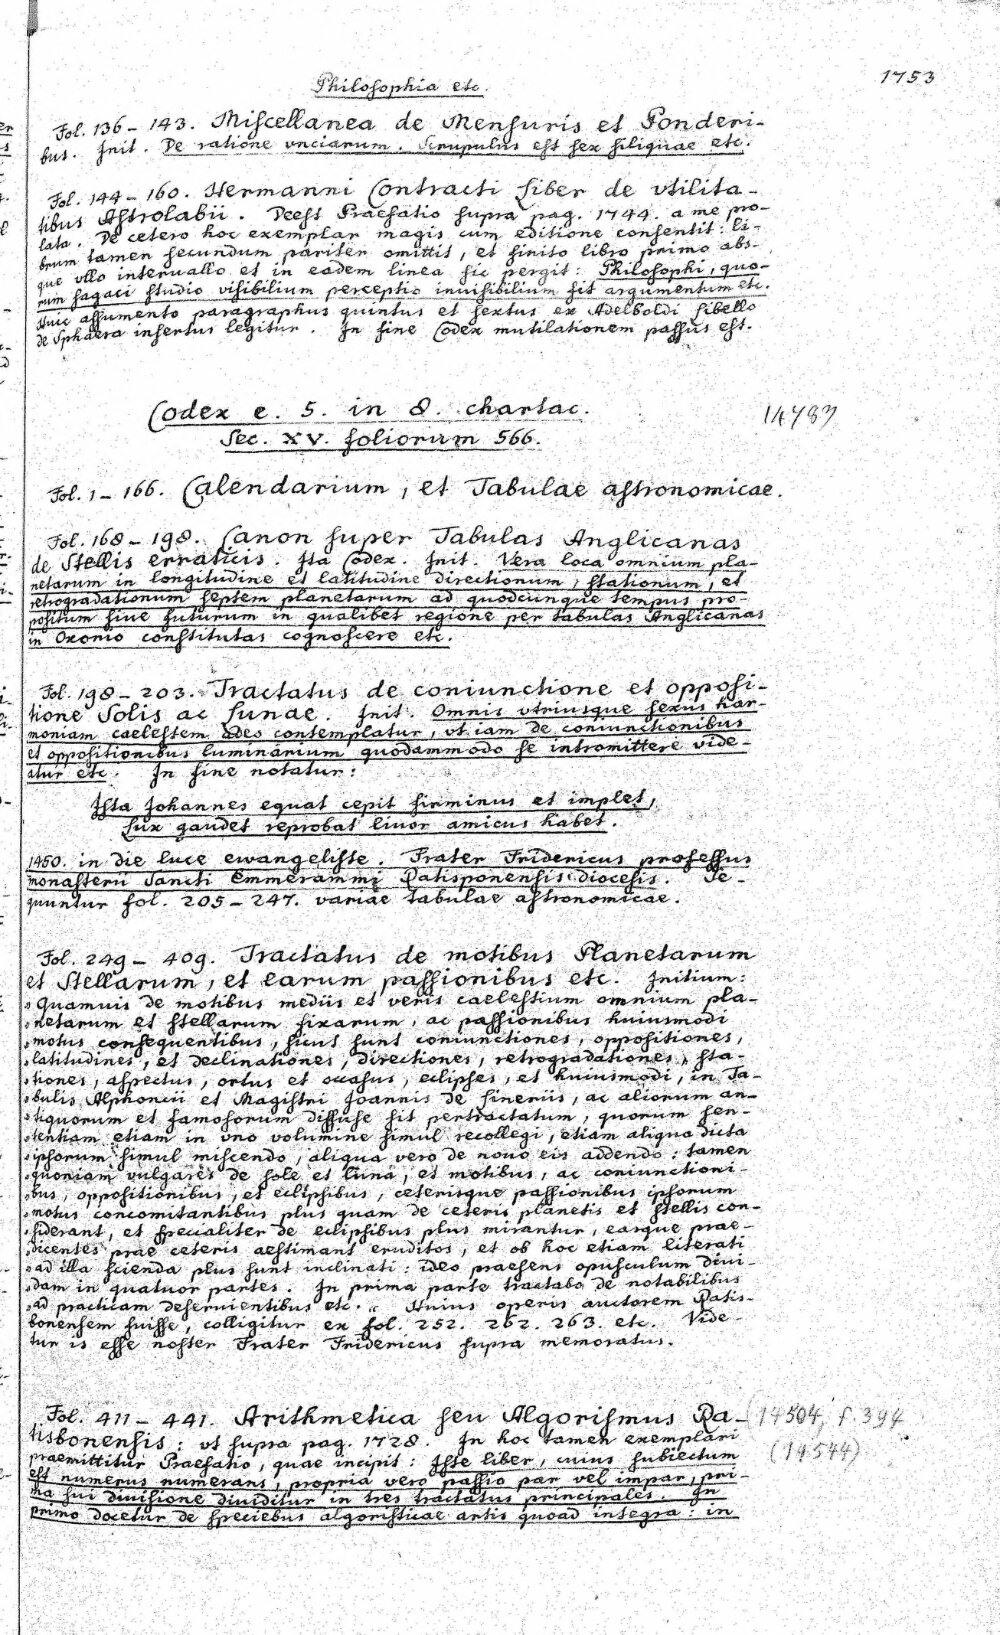 Philosophia etc.
1753
Fol. 136 – 143. Miscellanea de Mensuris et Ponderi-
bus. Init. De ratione vnciarum. Scrupulus est sex siliquae etc.
Fol. 144 – 160. Hermanni Contracti Liber de vtilita-
tibus Astrolabii. Deest Praefatio supra pag. 1744. a me pro-
lata. De cetero hoc exemplar magis cum editione consentit: li-
brum tamen secundum pariter omittit, et finito libro primo abs-
que vllo interuallo et in eadem linea sic pergit: Philosophi, quo-
rum sagaci studio visibilium perceptio inuisibilium fit argumentum etc.
Huic assumento paragraphus quintus et sextus ex Adelboldi Libello
de Sphaera insertus legitur. In fine Codex mutilationem passus est.
Codex e. 5. in 8. chartac.
14783
Sec. XV. foliorum 566.
Fol. 1 – 166. Calendarium, et Tabulae astronomicae.
Fol. 168 – 198. Canon super Tabulas Anglicanas
de Stellis erraticis. Ita Codex. Init. Vera loca omnium pla-
netarum in longitudine et latitudine directionum, stationum, et
retrogradationum septem planetarum ad quodcunque tempus pro-
positum siue futurum in qualibet regione per tabulas Anglicanas
in Oxonio constitutas cognoscere etc.
Fol. 198 – 203. Tractatus de coniunctione et opposi-
tione Solis ac Lunae. Init. Omnis vtriusque sexus har-
moniam caelestem adeo contemplatur, vt iam de coniunctionibus
et oppositionibus luminarium quodammodo se intromittere vide-
atur etc. In fine notatur:
Ista Johannes equat cepit firminus et implet,
Lux gaudet reprobat liuor amicus habet.
1450. in die luce ewangeliste. Frater Fridericus professus
monasterii Sancti Emmerammi Ratisponensis diocesis. Se-
quuntur fol. 205 – 247. variae tabulae astronomicae.
Fol. 249 – 409. Tractatus de motibus Planetarum
et Stellarum, et earum passionibus etc. Initium:
„Quamuis de motibus mediis et veris caelestium omnium pla-
„netarum et stellarum fixarum, ac passionibus huiusmodi
„motus consequentibus, sicut sunt coniunctiones, oppositiones,
„latitudines, et declinationes, directiones, retrogradationes, sta-
„tiones, aspectus, ortus et occasus, eclipses, et huiusmodi, in Ta-
„bulis Alphoncii et Magistri Joannis de Lineriis, ac aliorum an-
„tiquorum et famosorum diffuse sit pertractatum, quorum sen-
„tentiam etiam in vno volumine simul recollegi, etiam aliqua dicta
„ipsorum simul miscendo, aliqua vero de nouo eis addendo: tamen
„quoniam vulgares de sole et luna, et motibus, ac coniunctioni-
„bus, oppositionibus, et eclipsibus, ceterisque passionibus ipsorum
„motus concomitantibus plus quam de ceteris planetis et stellis con-
„siderant, et specialiter de eclipsibus plus mirantur, easque prae-
„dicentes prae ceteris aestimant eruditos, et ob hoc etiam literati
„ad illa scienda plus sunt inclinati: ideo praesens opusculum diui-
„dam in quatuor partes. In prima parte tractabo de notabilibus
„ad practicam deseruientibus etc. „ Huius operis auctorem Ratis-
bonensem fuisse, colligitur ex fol. 252. 262. 263. etc. Vide-
tur is esse noster Frater Fridericus supra memoratus.
Fol. 411 – 441. Arithmetica seu Algorismus Ra-
14504, f. 394
tisbonensis: vt supra pag. 1728. In hoc tamen exemplari
(14544)
praemittitur Praefatio, quae incipit: Iste liber, cuius subiectum
est numerus numerans, propria vero passio par vel impar, pri-
ma sui diuisione diuiditur in tres tractatus principales. In
primo docetur de speciebus algoristicae artis quoad integra: in